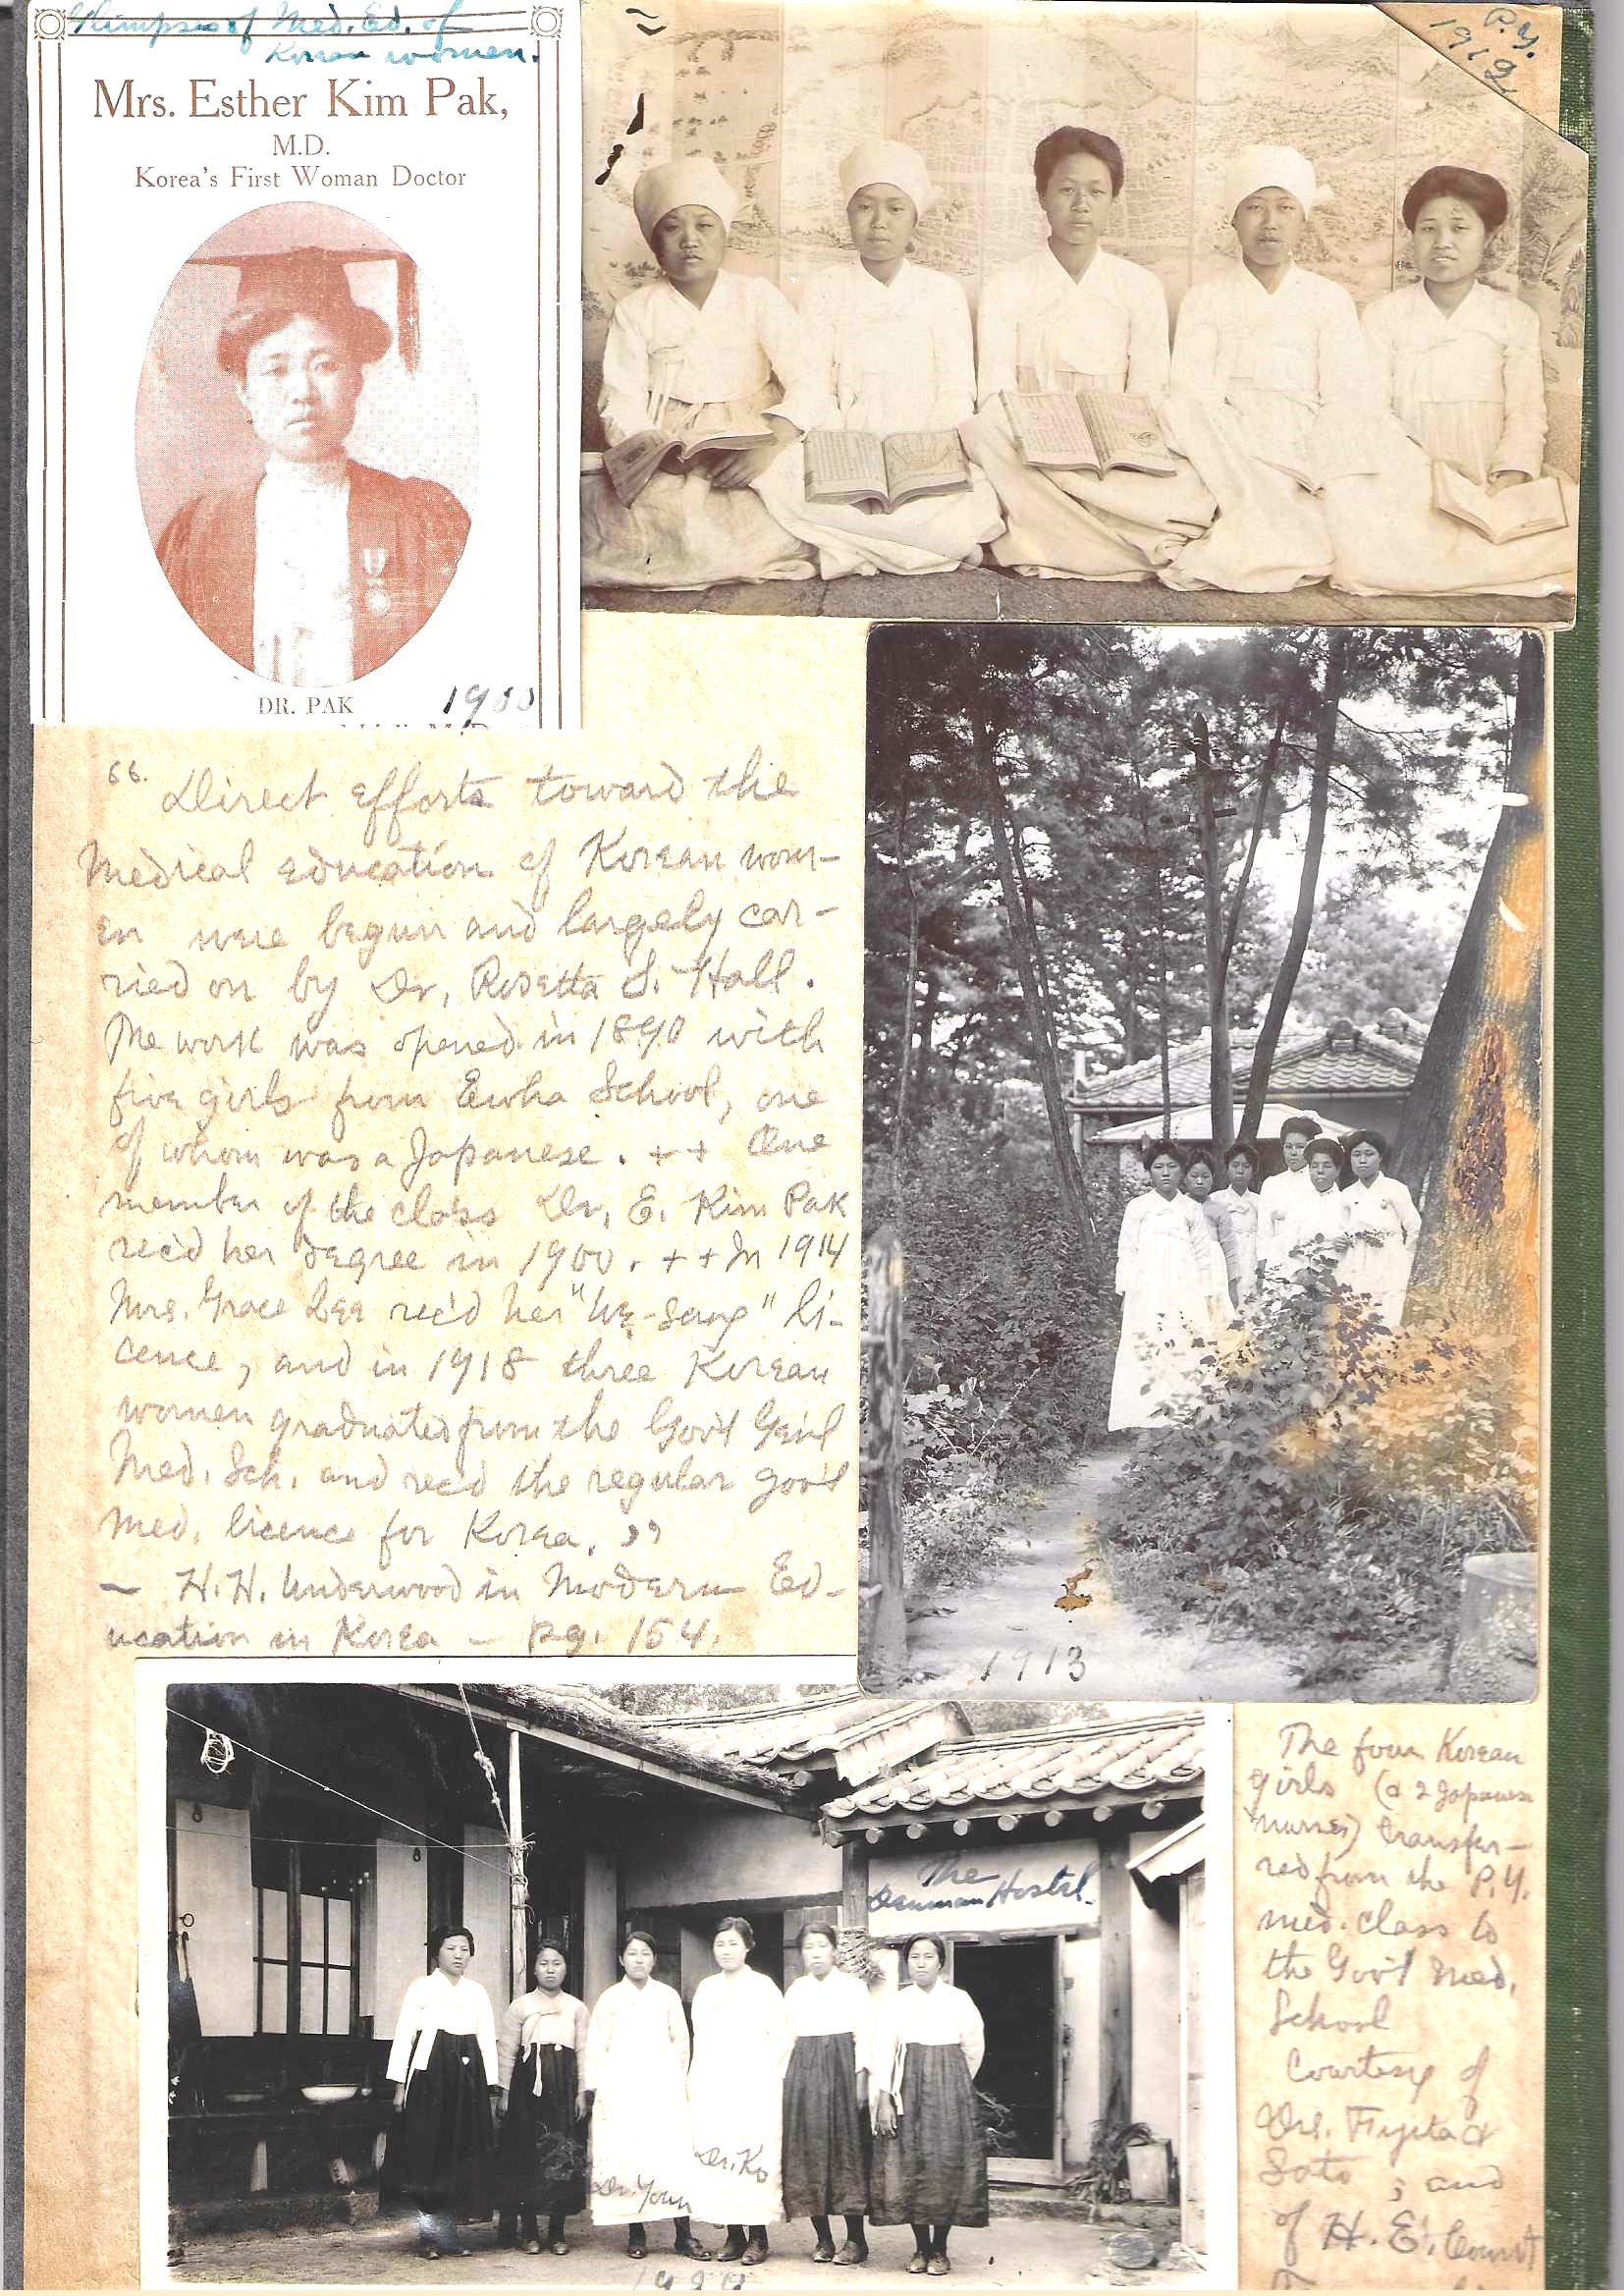 Glimpses of Med. Ed. of
Korean women.
Mrs. Esther Kim Pak,
M.D.
Korea's First Woman Doctor
DR. PAK
1900
P.Y.
1912
" Direct efforts toward the
medical education of Korean wom-
en were begun and largely car-
ried on by Dr. Rosetta S. Hall.
The work was opened in 1890 with
five girls from Ewha School, one
of whom was a Japanese. ++ One
member of the class Dr. E. Kim Pak
rec'd her degree in 1900. ++ In 1914
Mrs. Grace Lee rec'd her "We-Sang" li-
cence, and in 1918 three Korean
women graduated from the Gov't Gen'l
Med. Sch. and rec'd the regular gov't
med. licence for Korea. "
— H.H. Underwood in Modern Ed-
ucation in Korea — pg. 154.
1913
The four Korean
girls (& 2 Japanese
nurses) transfer-
red from the P.Y.
med. class to
the Gov't Med.
School
Courtesy of
Drs. Fujita &
Sato ; and
of H. E.
The
Hostel.
Dr. Ko
Dr. Youn